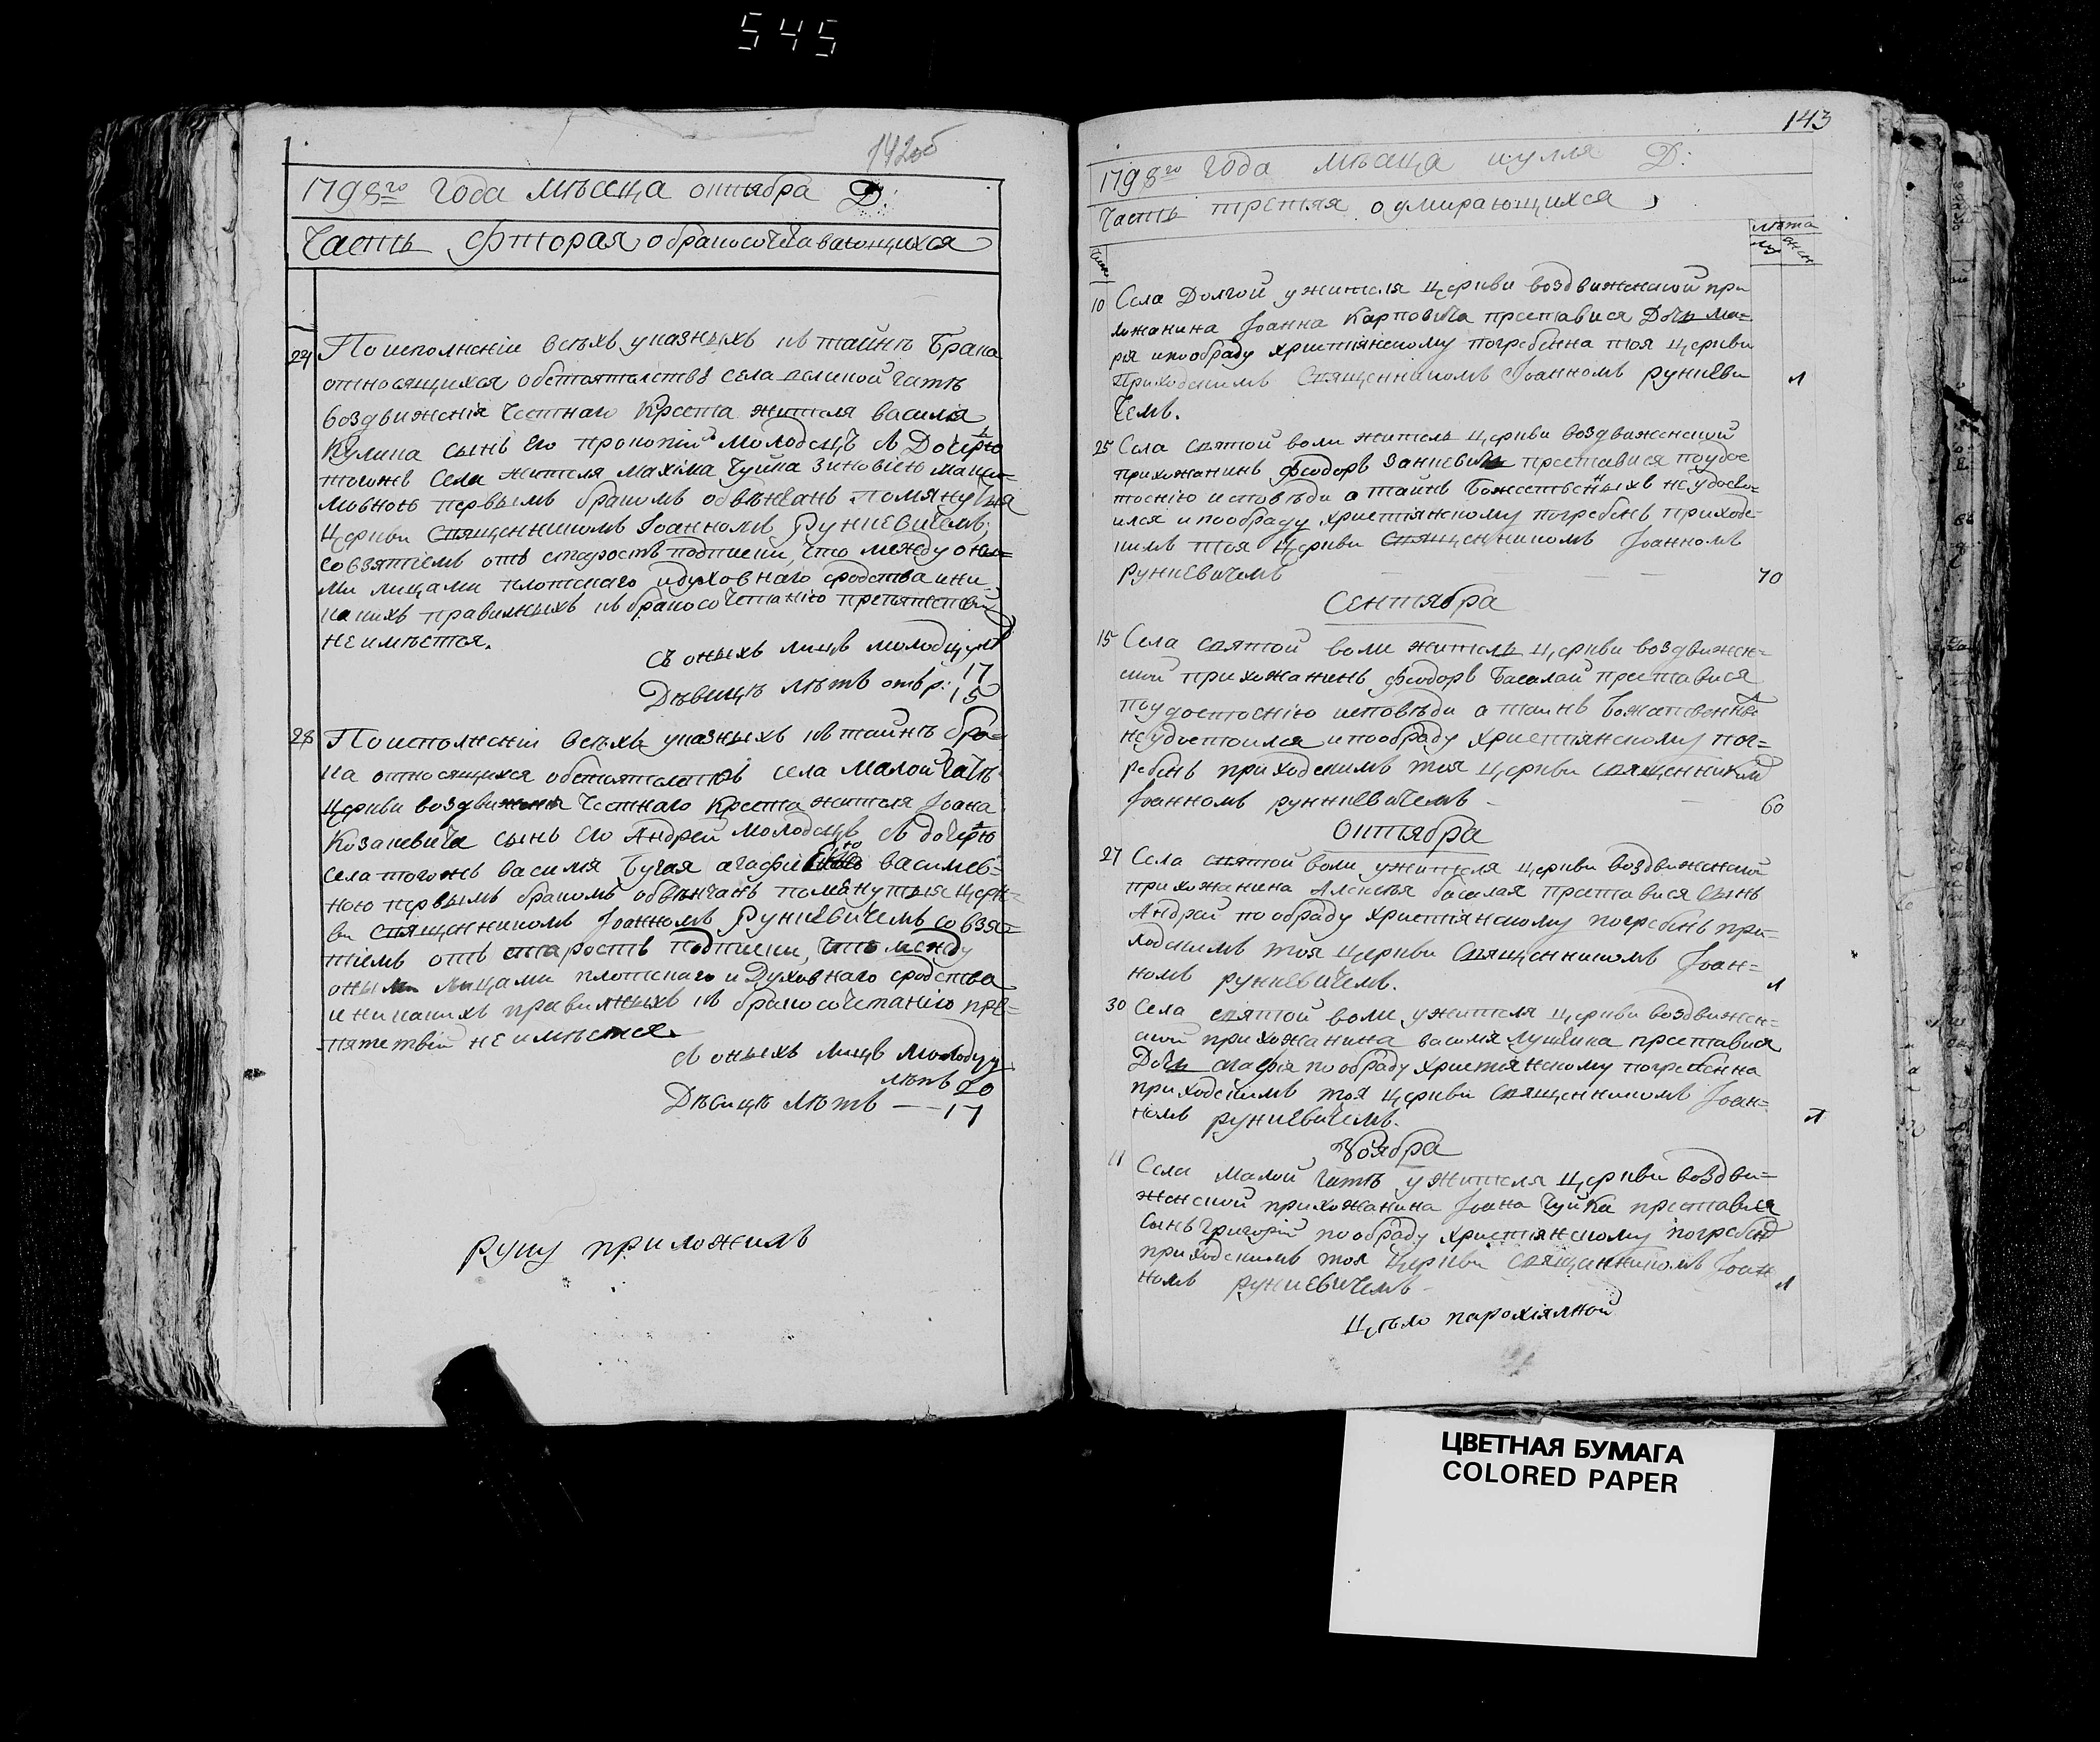 545
142об
1798го года мѣсеца октября Д:
Часть фторая о бракосочетавающихся
24 По исполненіи всѣхъ указныхъ къ таинѣ брака
относящихся обстоятелствъ села великой гатѣ
воздвиженія Честнаго Креста жителя василія
Кулика сынъ его прокопій молодецъ с дочерю
тогожъ села жителя махіма Чуйка зиновіею макси-
мовною первымъ бракомъ обвѣнчанъ помянутыя
Церкви Священникомъ Іоанномъ Рункевичемъ,
со взятіемъ отъ старостъ подписки, что между оны-
ми лицами плотскаго и духовнаго сродства и ни-
какихъ правилныхъ къ бракосочетанію препятствій
не имѣется.
Съ оныхъ лицъ молодцу лѣтъ
17
Дѣвицѣ лѣтъ отъ р: 15
28 По исполненіи всѣхъ указныхъ къ таинѣ бра=
ка относящихся обстоятелствъ села Малой Гатѣ
Церкви воздвиженія Честнаго Креста жителя Іоана
Козакевича сынъ его Андрей молодецъ с дочерю
села тогожъ василія Бугая агафіею василев=
ною первымъ бракомъ обвѣнчанъ помянутыя церк=
ви Священникомъ Іоанномъ Рункевичемъ со взя=
тіемъ отъ старостъ подписки, что между
оными лицами плотскаго и Духовнаго сродства
и никакихъ правилныхъ къ бракосочетанію пре=
пятствій не имѣется.
С оныхъ лицъ молодцу
лѣтъ 20
Дѣвицѣ лѣтъ — — 17
руку приложилъ
143
1798го года мѣсяца иулля Д:
Часть третяя о умирающихся
лѣта
му жен
10 Села Долгой у жителя церкви воздвиженской при
хожанина Іоанна Карповича преставися Дочь ма=
рія и по обряду христіянскому погребенна тоя церкви
Приходскимъ Священникомъ Іоанномъ рункеви 1
чемъ.
25 Села святой воли житель церкви воздвиженской
прихожанинъ феодоръ Занкевичъ преставися по удос
тоенію исповѣди а таинъ Божественныхъ не удосто=
ился и по обряду христіянскому погребенъ приходс-
кимъ тоя церкви Священникомъ Іоанномъ
рункевичемъ — — 70
Сентября
15 Села святой воли житель церкви воздвижен=
ской прихожанинъ феодоръ Басалай преставися
по удостоенію исповѣди а таинъ Божественныхъ
не удостоился и по обряду христіянскому пог=
ребенъ приходскимъ тоя церкви священникомъ
Іоанномъ рункиевичемъ — — 60
Октября
27 Села святой воли у жителя церкви воздвиженской
прихожанина Алексѣя басалая преставися сынъ
Андрей по обряду христіянскому погребенъ при=
ходскимъ тоя церкви Священникомъ Іоан=
номъ рункевичемъ. 1
30 Села святой воли у жителя церкви воздвижен=
ской прихожанина василія преставися
Дочь агафія по обряду христіянскому погребенна
приходскимъ тоя церкви Священникомъ Іоан=
номъ рункевичемъ. 1
Ноября
11 Села малой гатѣ у жителя церкви воздви=
женской прихожанина Іоана Чуйка преставися
сынъ григорій по обряду христіянскому погребенъ
приходскимъ тоя церкви священникомъ Іоан
номъ рункевичемъ — 1
Цѣло парохіялной
ЦВЕТНАЯ БУМАГА
COLORED PAPER